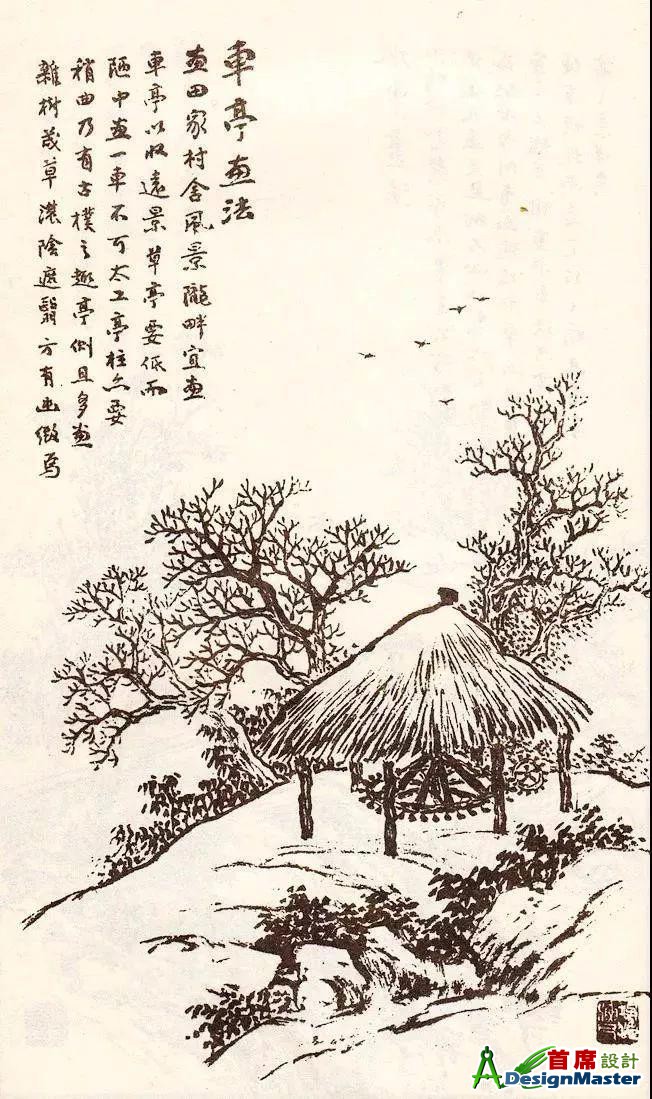 車亭畫法
畫田家村舍風景隴畔宜畫
車亭以收遠景草亭要低而
陋中畫一車不可太工亭柱亦要
稍曲乃有古樸之趣亭側且多畫
雜樹茂草濃陰遮翳方有幽微焉
首席設計
DesignMaster